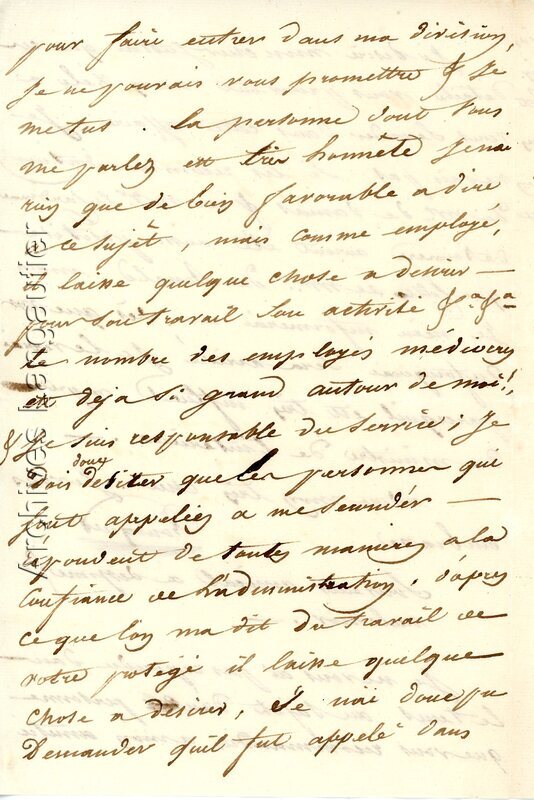 pour faire entrer dans ma division,
Je ne pouvais vous promettre & Je
me tus. la personne dont vous
me parlez est très honnête Je nai
rien que de bien favorable a dire
a ce sujet, mais comme employé,
il laisse quelque chose a desirer —
pour son travail son activité &a &a
le nombre des employés médiocres
est deja si grand autour de moi!,
& Je suis responsable du service; Je
dois donc desirer que les personnes qui
sont appelées a me seconder —
répondent de toutes manieres a la
Confiance de Ladministration, d'après
ce que lon ma dit du travail de
votre protégé il laisse quelque
chose a desirer, Je nai donc pu
Demander qu'il fut appelé dans
Archives Langautier